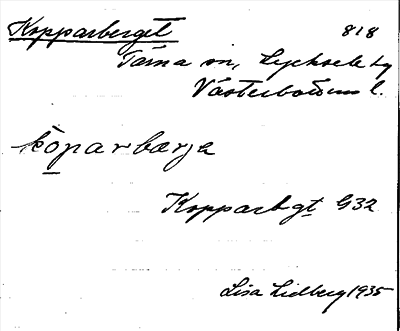 Kopparberget 818
Tärna sn, Lycksele lg
Västerbottens l.
kòparbærja
Kopparbgt G32
Lisa Lidberg 1935